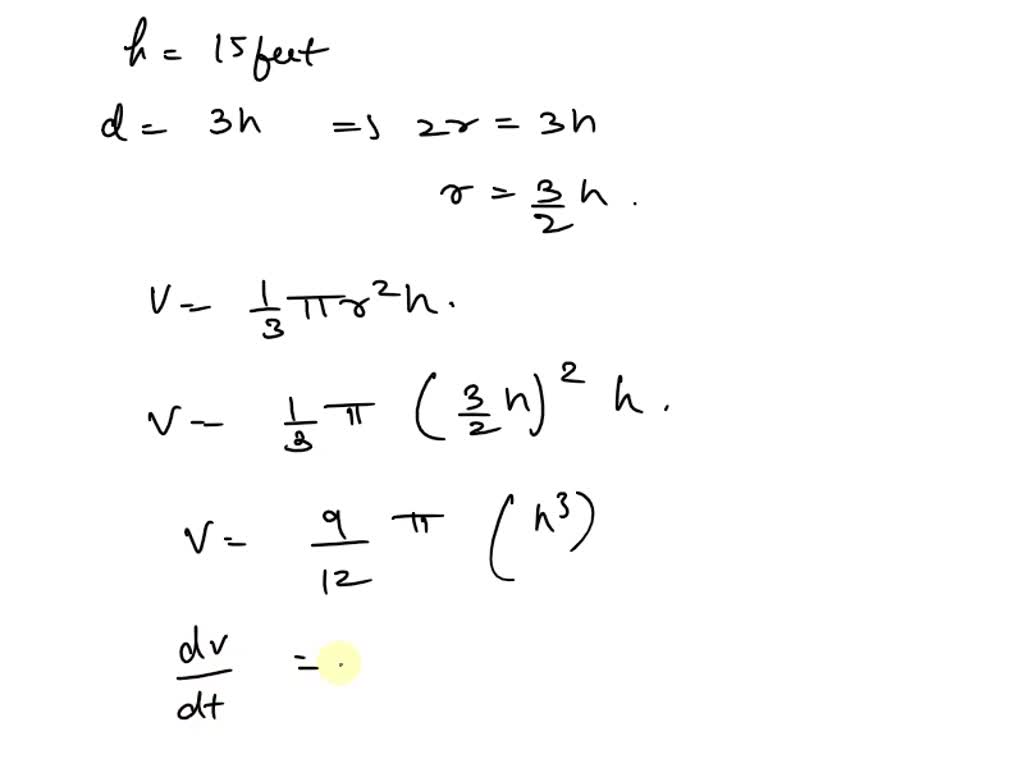 h = 15 feet
d = 3h => 2r = 3h
r = 3/2 h .
V = 1/3 πr²h .
V = 1/3 π (3/2 h)² h .
V = 9/12 π (h³)
dv/dt = .